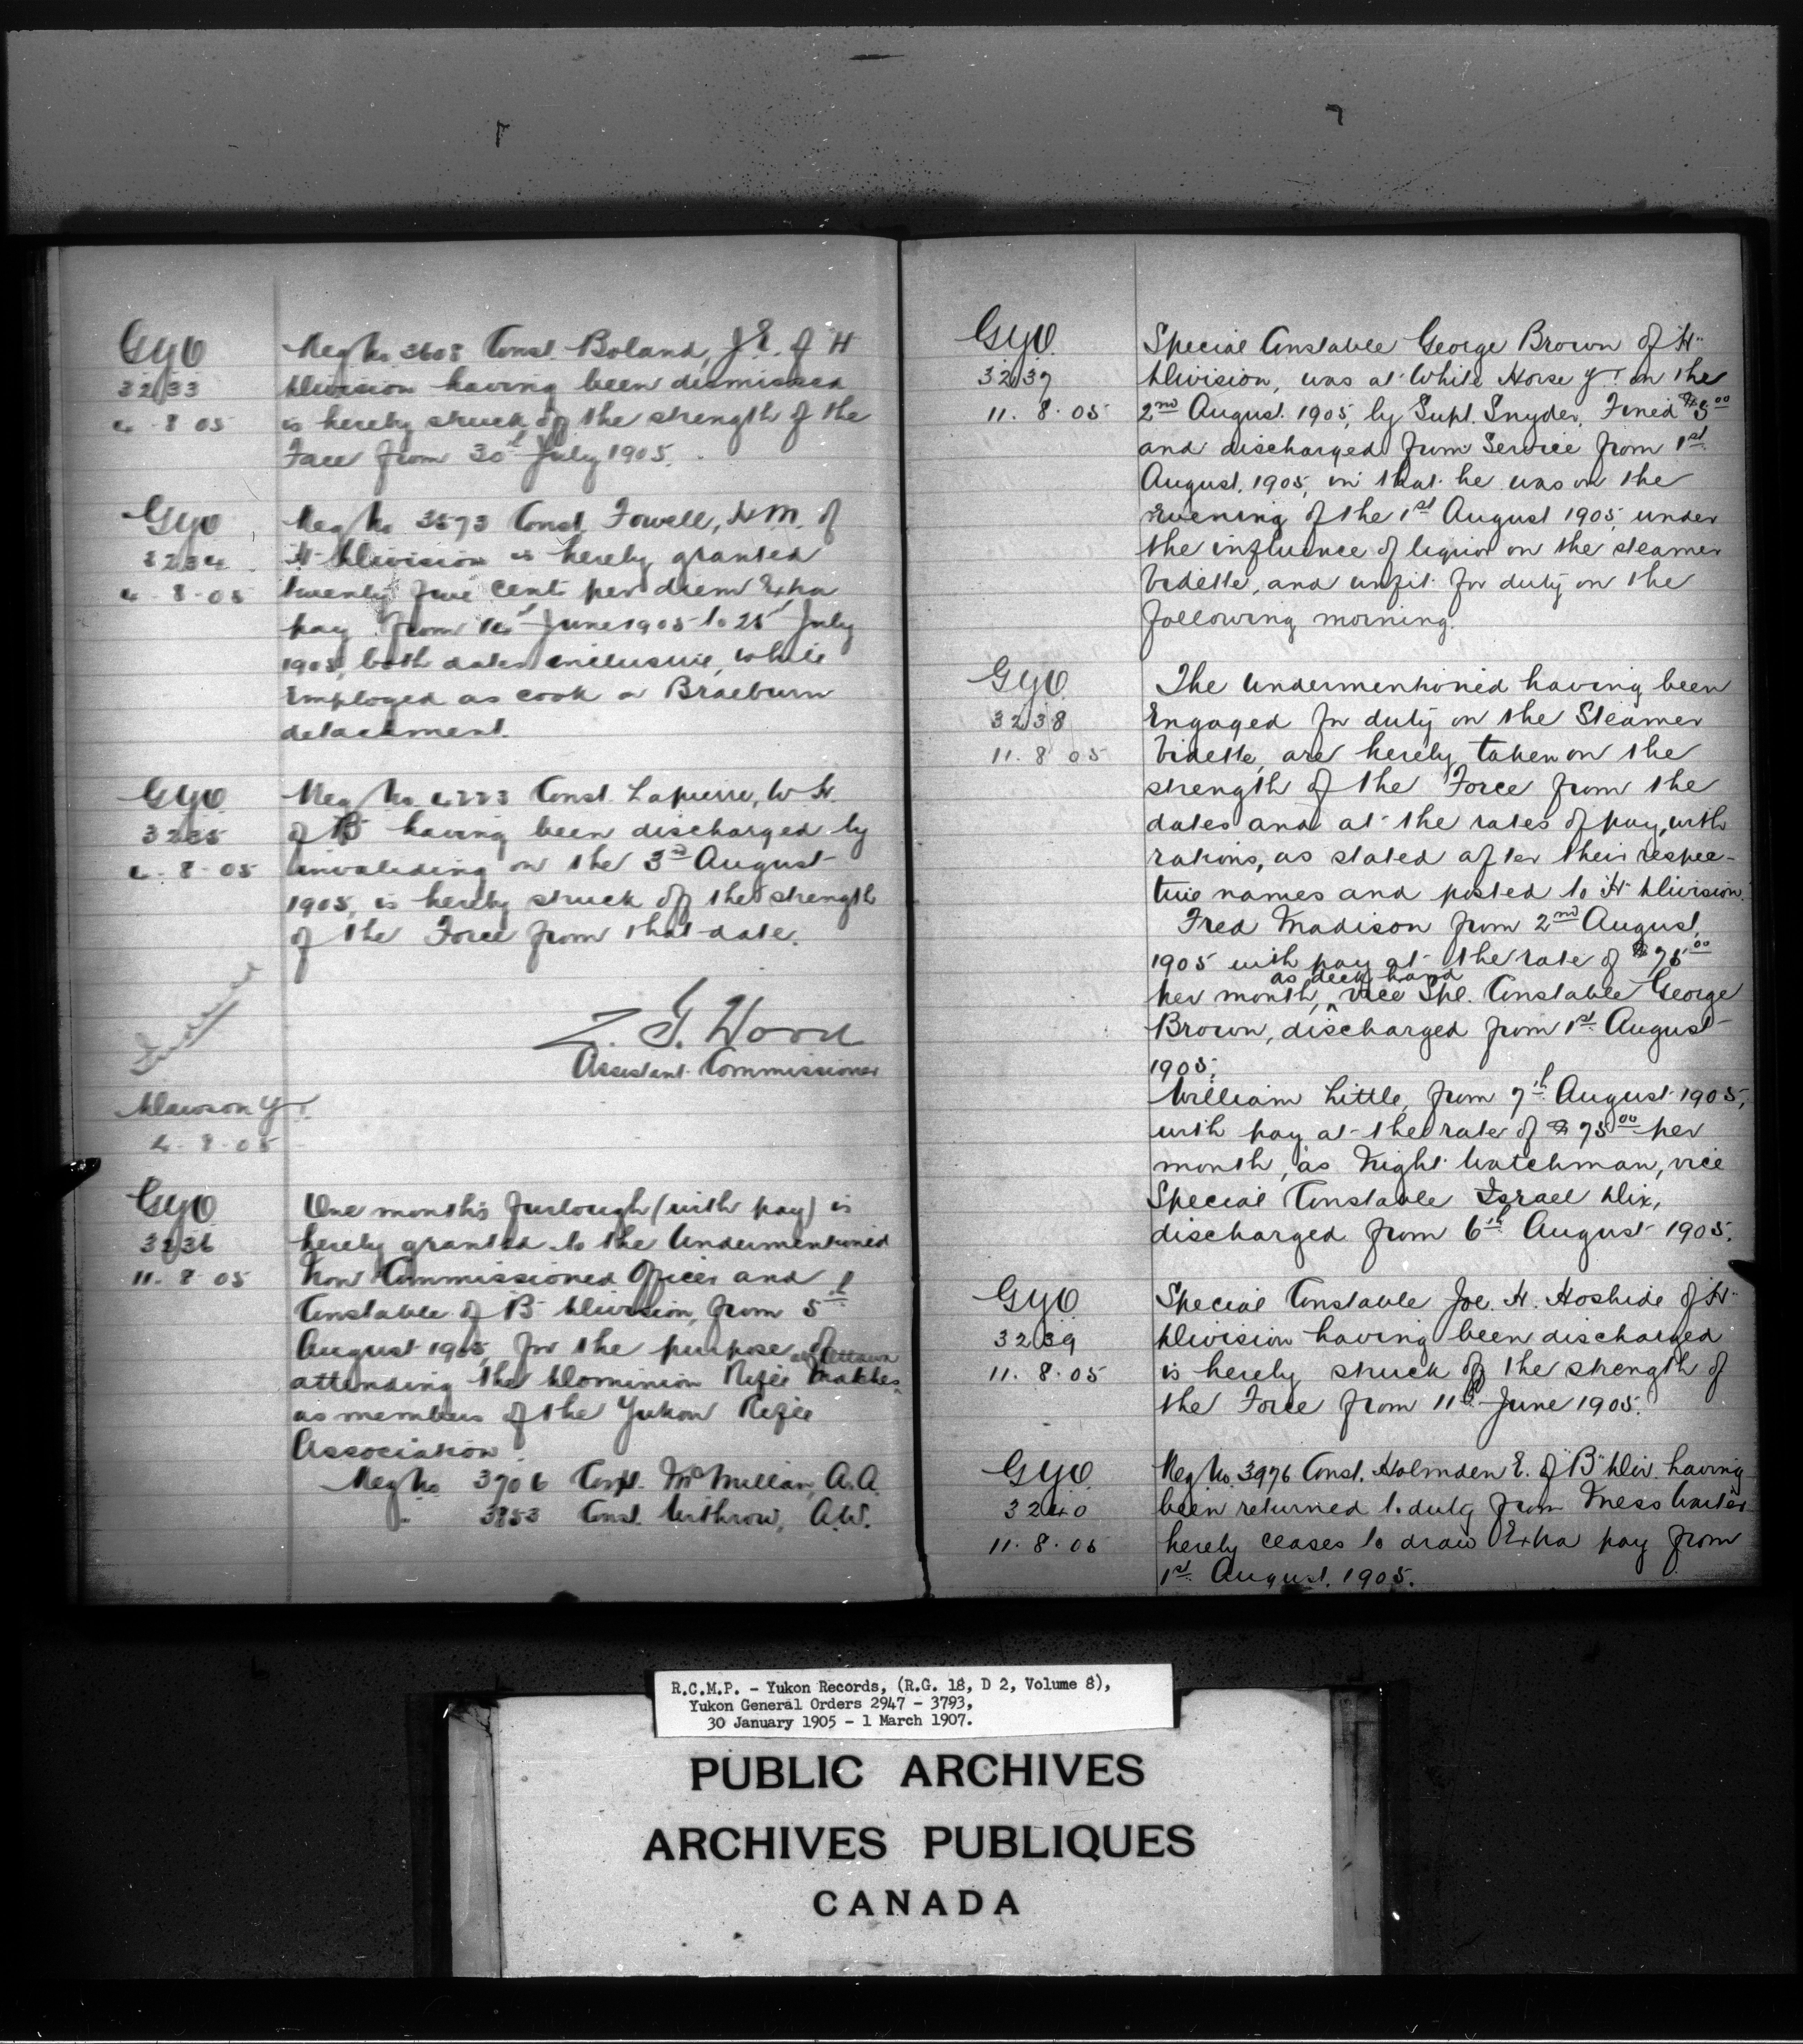 GYO
3233
4-8-05
Reg No 3608 Const. Boland, J.E. of H
Division having been dismissed
is hereby struck off the strength of the
Force from 30th July 1905.
GYO
3234
4-8-05
Reg No 3573 Const. Fowell, H.M. of
H Division is hereby granted
twenty five cents per diem Extra
pay from 16th June 1905 to 25th July
1905, both dates inclusive, while
Employed as cook at Braeburn
detachment.
GYO
3235
4-8-05
Reg No 4223 Const. Lapierre, W.H.
of B having been discharged by
invaliding on the 3rd August
1905, is hereby struck off the strength
of the Force from that date.
Z. T. Wood
Assistant Commissioner
Dawson Y.T.
4-8-05
GYO
3236
11-8-05
One months furlough (with pay) is
hereby granted to the Undermentioned
Non Commissioned Officer and
Constable of B Division, from 5th
August 1905, for the purpose of
attending the Dominion Rifle Matches at Ottawa
as members of the Yukon Rifle
Association.
Reg No 3706 Corpl. McMillan, A.A.
" 3853 Const. Withrow, A.W.
GYO
3237
11.8.05
Special Constable George Brown of "H"
Division, was at White Horse Y.T. on the
2nd August 1905, by Supt. Snyder, Fined $5.00
and discharged from Service from 1st
August, 1905, in that he was on the
Evening of the 1st August 1905, under
the influence of liquor on the steamer
Vidette, and unfit for duty on the
following morning.
GYO
3238
11.8.05
The Undermentioned having been
Engaged for duty on the Steamer
Vidette, are hereby taken on the
strength of the Force from the
dates and at the rates of pay, with
rations, as stated after their respec-
tive names and posted to "H" Division.
Fred Madison from 2nd August,
1905 with pay at the rate of $75.00
per month, as deck hand vice Spl. Constable George
Brown, discharged from 1st August
1905.
William Little, from 7th August 1905,
with pay at the rate of $75.00 per
month, as Night Watchman, vice
Special Constable Israel Dix,
discharged from 6th August 1905.
GYO
3239
11.8.05
Special Constable Joe. H. Hoshide of "H"
Division having been discharged
is hereby struck off the strength of
the Force from 11th June 1905.
GYO
3240
11.8.05
Reg No. 3976 Const. Holmden E. of "B" Div. having
been returned to duty from Mess Waiter
hereby ceases to draw Extra pay from
1st August, 1905.
R.C.M.P. - Yukon Records, (R.G. 18, D 2, Volume 8),
Yukon General Orders 2947 - 3793,
30 January 1905 - 1 March 1907.
PUBLIC ARCHIVES
ARCHIVES PUBLIQUES
CANADA